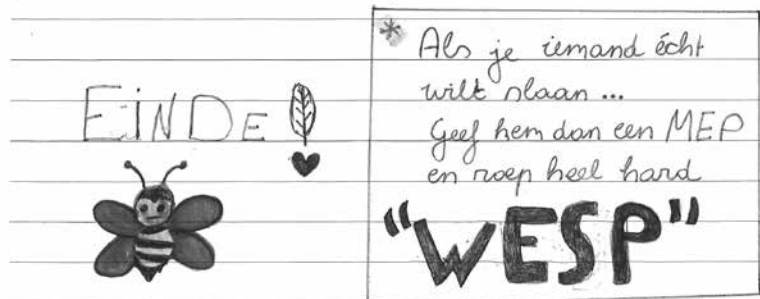 EiNDE!
* Als je iemand écht
wilt slaan ...
Geef hem dan een MEP
en roep heel hard
"WESP"